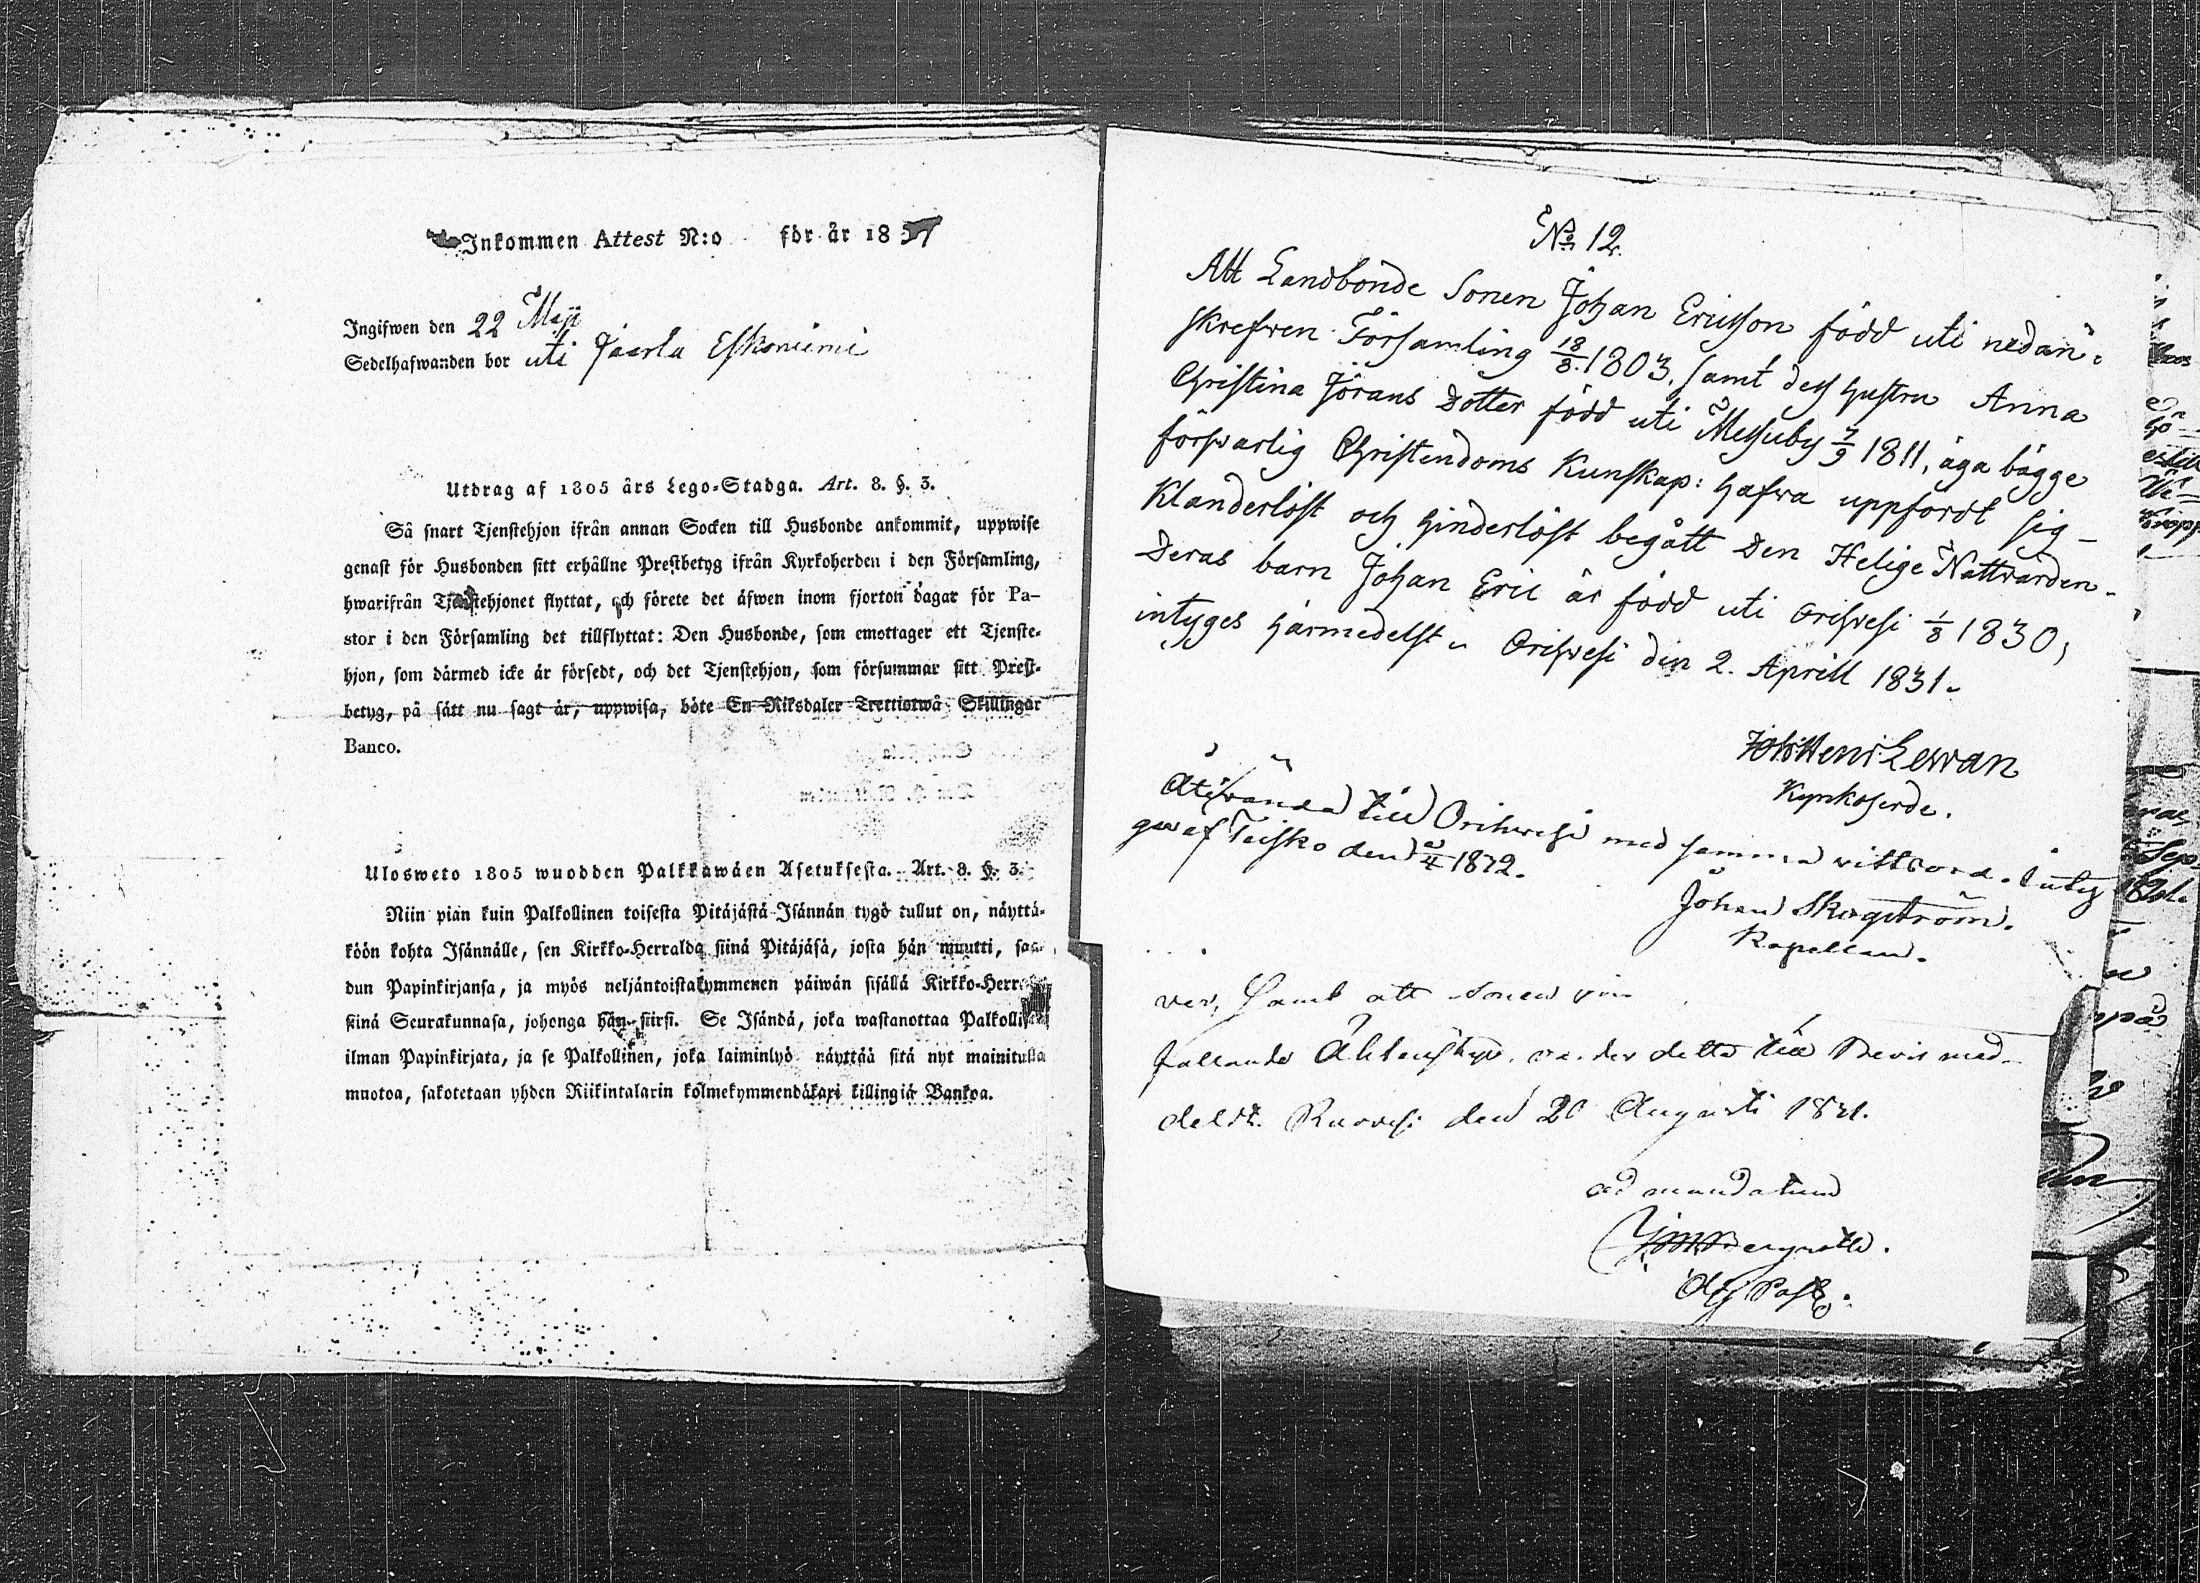 Inkommen Attest N:o för år 18
Ingifwen den 22 Maji
Sedelhafwanden bor uti Jaarla Eskoniemi
Utdrag af 1805 års Lego-Stadga. Art. 8. §. 3.
Så snart Tjenstehjon ifrån annan Socken till Husbonde ankommit, uppwise
genast för Husbonden sitt erhållne Prestbetyg ifrån Kyrkoherden i den Församling,
hwarifrån Tjenstehjonet flyttat, och förete det äfwen inom fjorton dagar för Pa-
stor i den Församling det tillflyttat: Den Husbonde, som emottager ett Tjenste-
hjon, som därmed icke är försedt, och det Tjenstehjon, som försummar sitt Prest-
betyg, på sätt nu sagt är, uppwisa, böte En Riksdaler Trettiotwå Skillingar
Banco.
Ulosweto 1805 wuodden Palkkawäen Asetuksesta. Art. 8. §. 3.
Niin pian kuin Palkollinen toisesta Pitäjästä Isännän tygö tullut on, näyttä-
köön kohta Isännälle, sen Kirkko-Herralda siinä Pitäjäsä, josta hän muutti, saa-
dun Papinkirjansa, ja myös neljäntoistakymmenen päiwän sisällä Kirkko-Herralle
siinä Seurakunnasa, johonga hän siirsi. Se Isändä, joka wastanottaa Palkollisen
ilman Papinkirjata, ja se Palkollinen, joka laiminlyö näyttää sitä nyt mainitulla
muotoa, sakotetaan yhden Riikintalarin kolmekymmendäkaxi killingiä Bankoa.
No 12.
Att Landbonde Sonen Johan Ericsson född uti nedan-
skrefwen Församling 18/8. 1803, samt dess hustru Anna
Christina Jörans Dotter född uti Messuby 7/9 1811, äga bägge
förswarlig Christendoms Kunskap: hafwa uppfördt sig
Klanderlöst och hinderlöst begått Den Helige Nattvarden.
Deras barn Johan Eric är född uti Orihvesi 1/8 1830,
intyges härmedelst. Orihvesi den 2. Aprill 1831.
Henr Lewan
Kyrkoherde.
Återvända till Orihwesi med samma vittsord. Intyg
gas af Teisko den 2/4 1872.
Johan Skogström.
Kapellan.
ver, Samt att Sonen
fallande detta till Bevis med-
deldt. Ruovesi den 20 Augusti 1821.
ad mandatum
Bergroth.
Past.